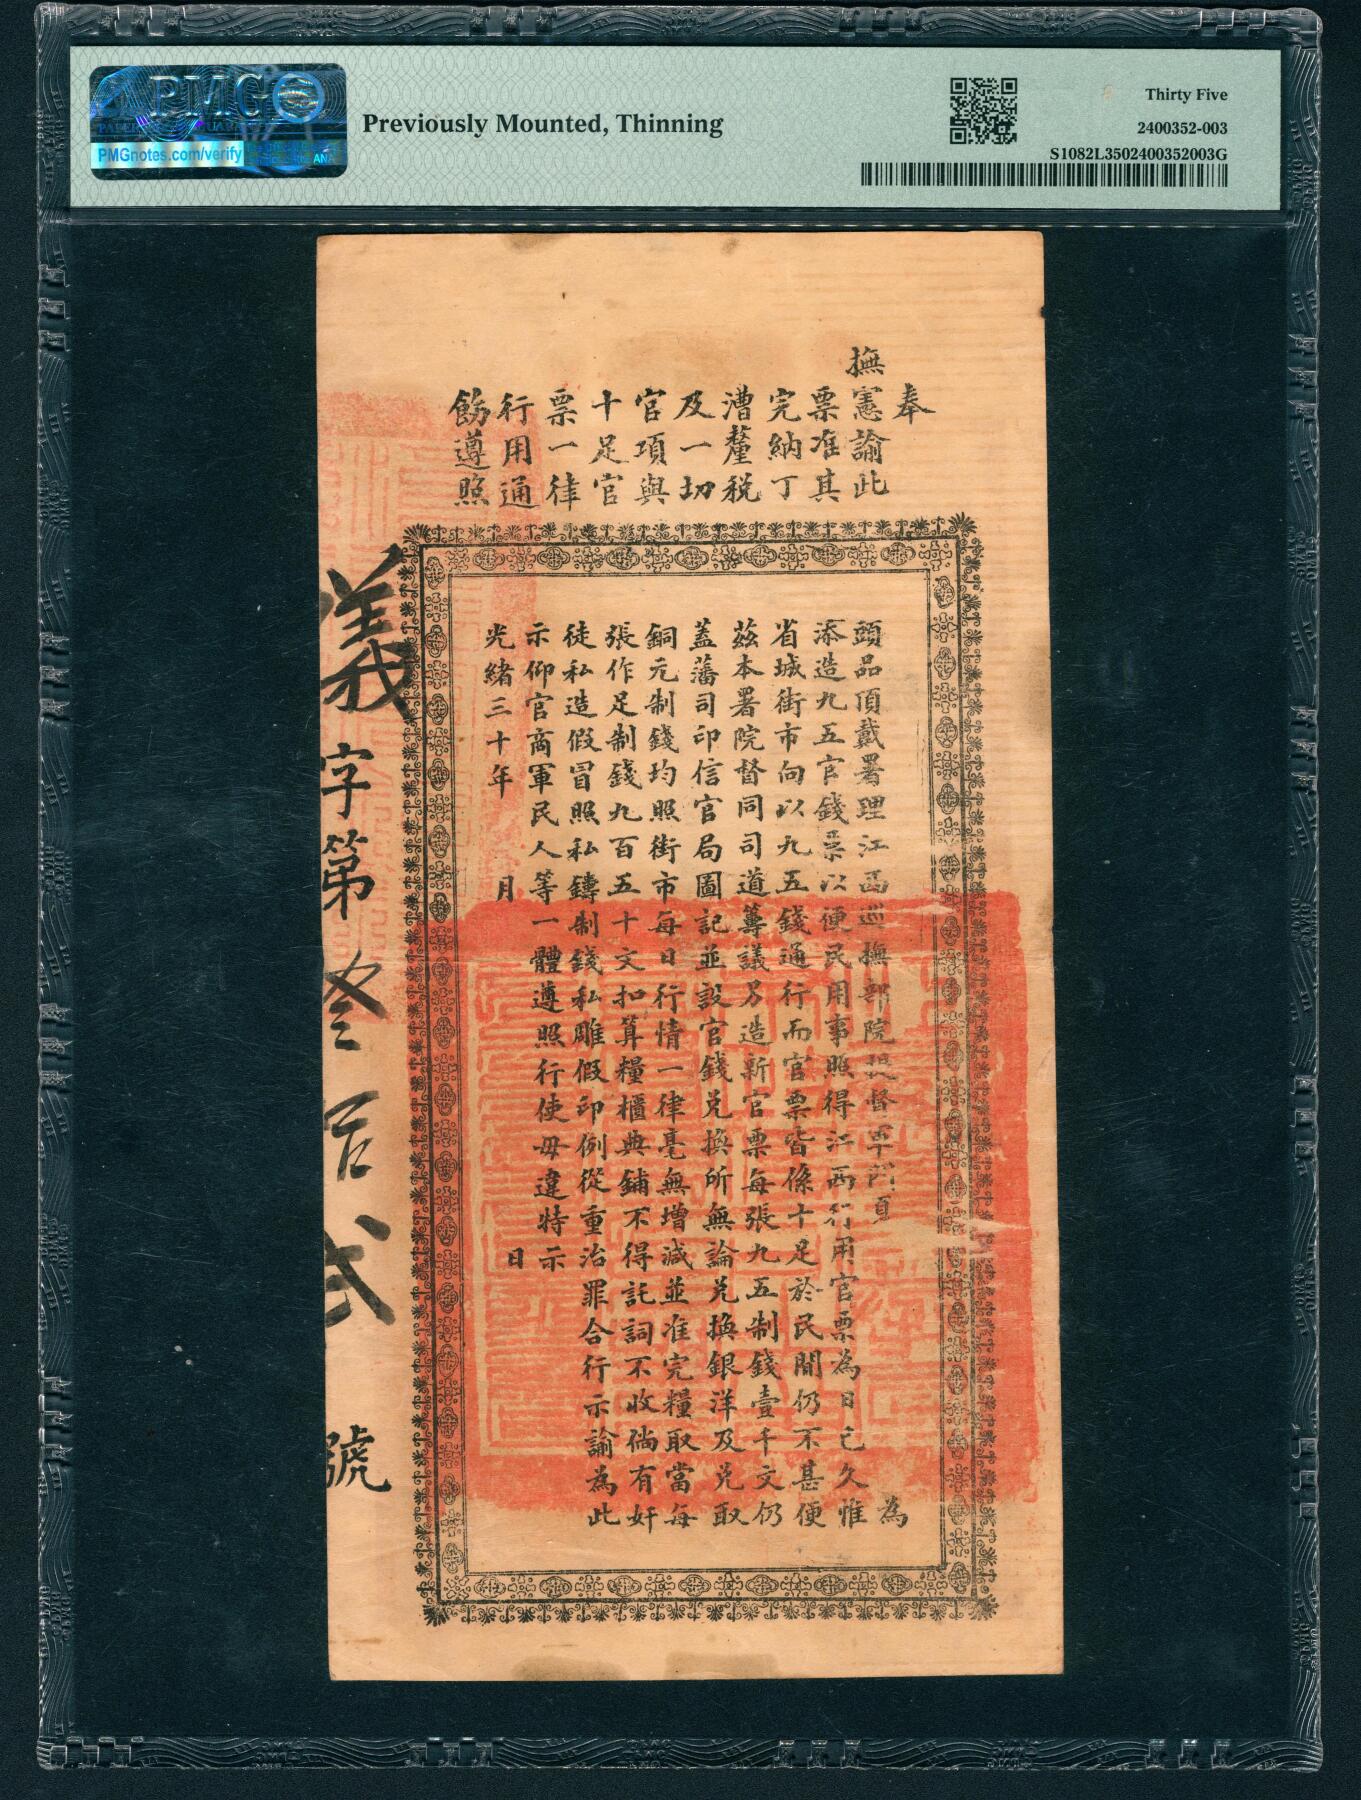 PMG
PMGnotes.com/verify
Previously Mounted, Thinning
Thirty Five
2400352-003
S1082L3502400352003G
奉
撫憲諭此
票准其
完納丁
漕釐稅
及一切
官項與
十足官
票一律
行用通
飭遵照
頭品頂戴署理江西巡撫部院提督軍門夏 為
添造九五官錢票以便民用事照得江西行用官票為日已久惟
省城街市向以九五錢通行而官票皆係十足於民間仍不甚便
茲本署院督同司道籌議另造新官票每張九五制錢壹千文仍
蓋藩司印信官局圖記並設官錢兌換所無論兌換銀洋及兌取
銅元制錢均照街市每日行情一律毫無增減並准完糧取當每
張作足制錢九百五十文扣算糧櫃典鋪不得託詞不收倘有奸
徒私造假冒照私鑄制錢私雕假印例從重治罪合行示諭為此
示仰官商軍民人等一體遵照行使毋違特示
光緒三十年 月 日
義字第 号